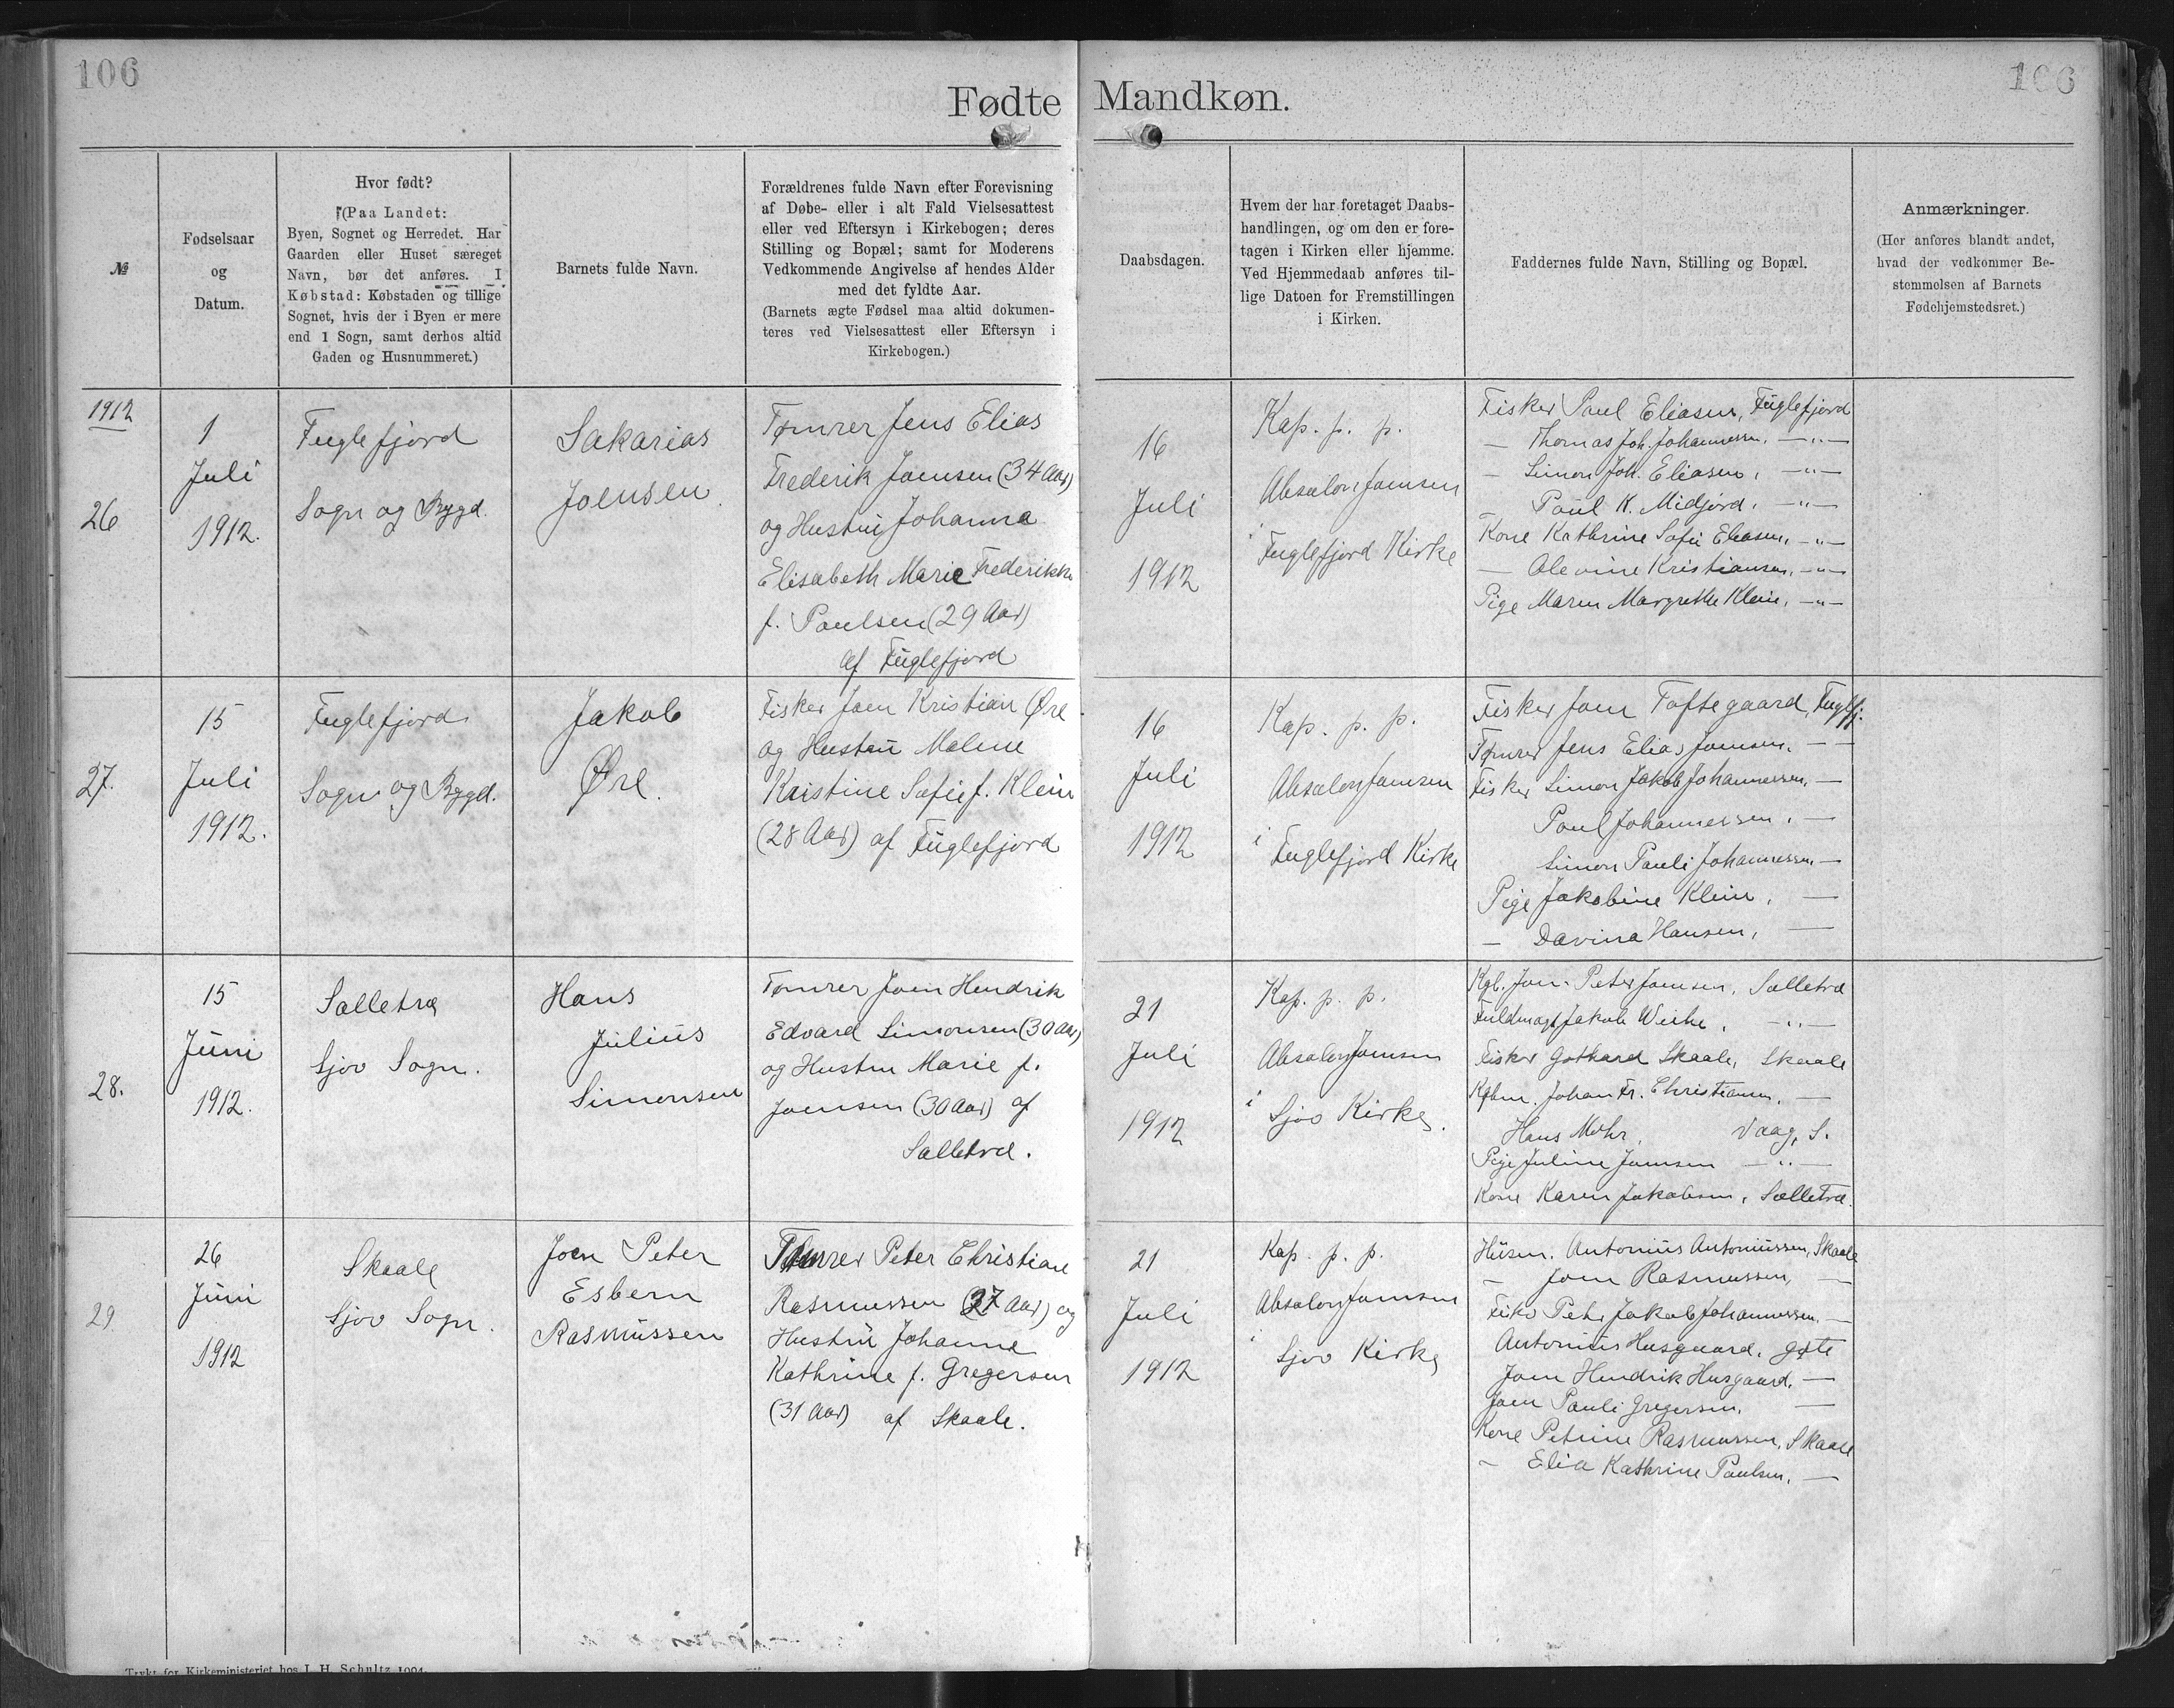 106
106
Fødte Mandkøn.
№
Fødselsaar
og
Datum.
Hvor født?
(Paa Landet:
Byen, Sognet og Herredet. Har
Gaarden eller Huset særeget
Navn, bør det anføres. I
Købstad: Købstaden og tillige
Sognet, hvis der i Byen er mere
end 1 Sogn, samt derhos altid
Gaden og Husnummeret.)
Barnets fulde Navn.
Forældrenes fulde Navn efter Forevisning
af Døbe- eller i alt Fald Vielsesattest
eller ved Eftersyn i Kirkebogen; deres
Stilling og Bopæl; samt for Moderens
Vedkommende Angivelse af hendes Alder
med det fyldte Aar.
(Barnets ægte Fødsel maa altid dokumen-
teres ved Vielsesattest eller Eftersyn i
Kirkebogen.)
Daabsdagen.
Hvem der har foretaget Daabs-
handlingen, og om den er fore-
tagen i Kirken eller hjemme.
Ved Hjemmedaab anføres til-
lige Datoen for Fremstillingen
i Kirken.
Faddernes fulde Navn, Stilling og Bopæl.
Anmærkninger.
(Her anføres blandt andet,
hvad der vedkommer Be-
stemmelsen af Barnets
Fødehjemstedsret.)
1912
26
1
Juli
1912.
Fuglefjord
Sogn og Bygd.
Sakarias
Joensen
Tømrer Jens Elias
Frederik Joensen (34 Aar)
og Hustru Johanna
Elisabeth Marie Frederikke
f. Poulsen (29 Aar)
af Fuglefjord
16
Juli
1912
Kap. p. p.
Absalon Joensen
i
Fuglefjord Kirke
Fisker Poul Eliasen, Fuglefjord
— Thomas Joh. Johannessen, —"—
— Simon Joh. Eliasen, —"—
Poul K. Midjord, —"—
Kone Kathrine Sofie Eliasen, —"—
— Olevine Kristiansen, —"—
Pige Maren Margrethe Klein, —"—
27.
15
Juli
1912.
Fuglefjord
Sogn og Bygd.
Jakob
Øre.
Fisker Joen Kristian Øre
og Hustru Malene
Kristine Sofie f. Klein
(28 Aar) af Fuglefjord
16
Juli
1912
Kap. p. p.
Absalon Joensen
i
Fuglefjord Kirke
Fisker Joen Toftegaard, Fuglfj.
Tømrer Jens Elias Joensen, — —
Fisker Simon Jakob Johannessen, —
Poul Johannessen, —
Simon Pauli Johannessen —
Pige Jakobine Klein, —
— Davina Hansen, —
28.
15
Juni
1912.
Salletræ
Sjov Sogn.
Hans
Julius
Simonsen
Tømrer Joen Hendrik
Edvard Simonsen (30 Aar)
og Hustru Marie f.
Joensen (30 Aar) af
Salletræ.
21
Juli
1912
Kap. p. p.
Absalon Joensen
i
Sjov Kirke.
Kgb. Joen Peter Joensen, Salletræ
Fuldmægt Jakob Weihe, —"—
Fisker Gothard Skaale, Skaale
Købm. Johan Fr. Christiansen, —
Hans Mohr, Vaag, S.
Pige Juline Joensen —"—
Kone Karen Jakobsen, Salletræ.
29.
26
Juni
1912
Skaale
Sjov Sogn.
Joen Peter
Esbern
Rasmussen
Tømrer Peter Christian
Rasmussen (27 Aar) og
Hustru Johanne
Kathrine f. Gregersen
(31 Aar) af Skaale.
21
Juli
1912
Kap. p. p.
Absalon Joensen
i
Sjov Kirke
Husm. Antonius Antoniussen, Skaale
— Joen Rasmussen, —
Fisker Peter Jakob Johannessen, —
Antonius Husgaard, Gøte
Joen Hendrik Husgaard, —
Joen Pauli Gregersen, —
Kone Petrine Rasmussen, Skaale
— Elia Kathrine Poulsen, —
Trykt for Kirkeministeriet hos J. H. Schultz 1904.